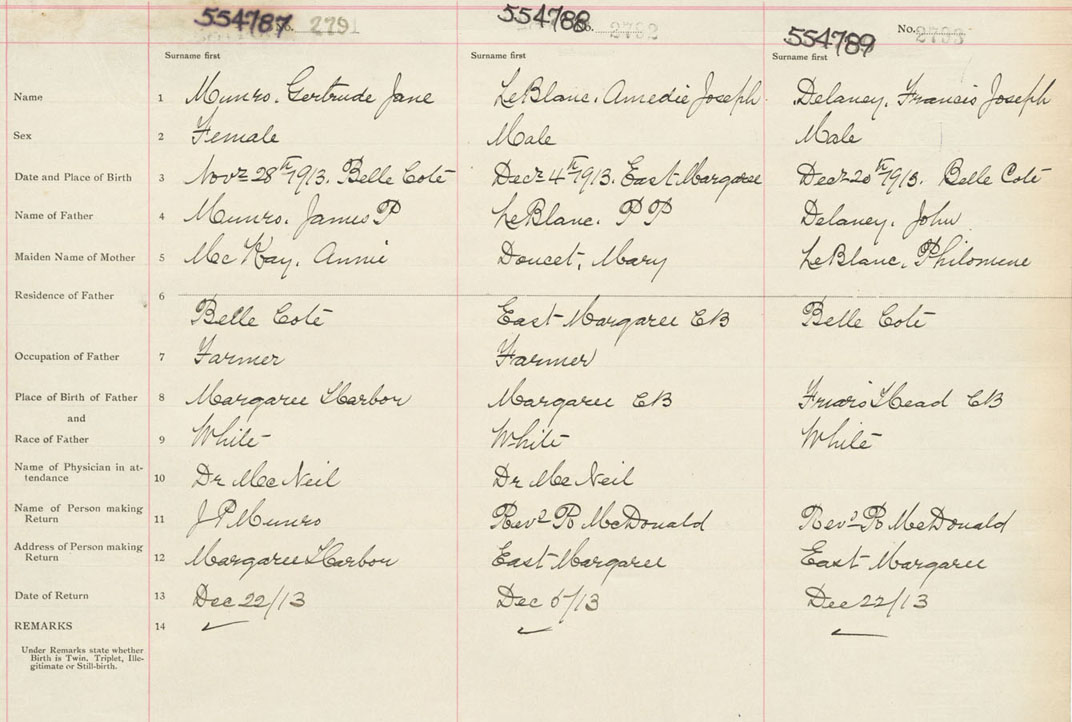 554787 No. 2791 554788 No. 2792 554789 No. 2793
Surname first Surname first Surname first
Name 1 Munro, Gertrude Jane LeBlanc, Amedie Joseph Delaney, Francis Joseph
Sex 2 Female Male Male
Date and Place of Birth 3 Novr 28th 1913. Belle Cote Decr 4th 1913. East Margaree Decr 20th 1913. Belle Cote
Name of Father 4 Munro, James P LeBlanc, P P Delaney, John
Maiden Name of Mother 5 McKay, Annie Doucet, Mary LeBlanc, Philomene
Residence of Father 6
Belle Cote East Margaree CB Belle Cote
Occupation of Father 7 Farmer Farmer
Place of Birth of Father 8 Margaree Harbor Margaree CB Friars Head CB
and
Race of Father 9 White White White
Name of Physician in at-
tendance 10 Dr McNeil Dr McNeil
Name of Person making
Return 11 J P Munro Revd R McDonald Revd R McDonald
Address of Person making
Return 12 Margaree Harbor East Margaree East Margaree
Date of Return 13 Dec 22/13 Dec 5/13 Dec 22/13
REMARKS 14
Under Remarks state whether
Birth is Twin, Triplet, Ille-
gitimate or Still-birth.